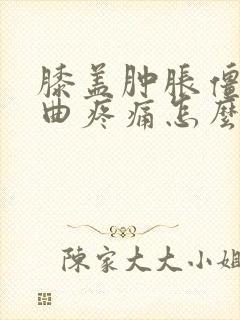 膝盖肿胀僵
曲疼痛怎麽
陳家大大小姐